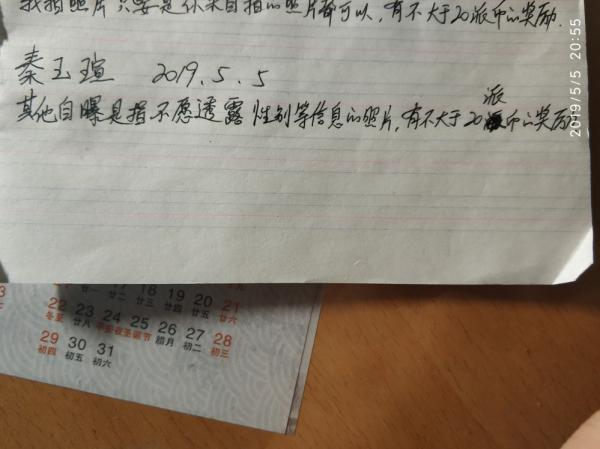 我拍照片只要是你亲自拍的照片都可以,有不大于20派币的奖励.
秦玉瑄 2019.5.5
派
其他自曝是指不愿透露性别等信息的照片,有不大于20币的奖励
2019/5/5 20:55
17 18 19 20 21
廿二 廿三 廿四 廿五 廿六
22 23 24 25 26 27 28
冬至 廿八 平安夜 圣诞节 腊月 初二 初三
29 30 31
初四 初五 初六